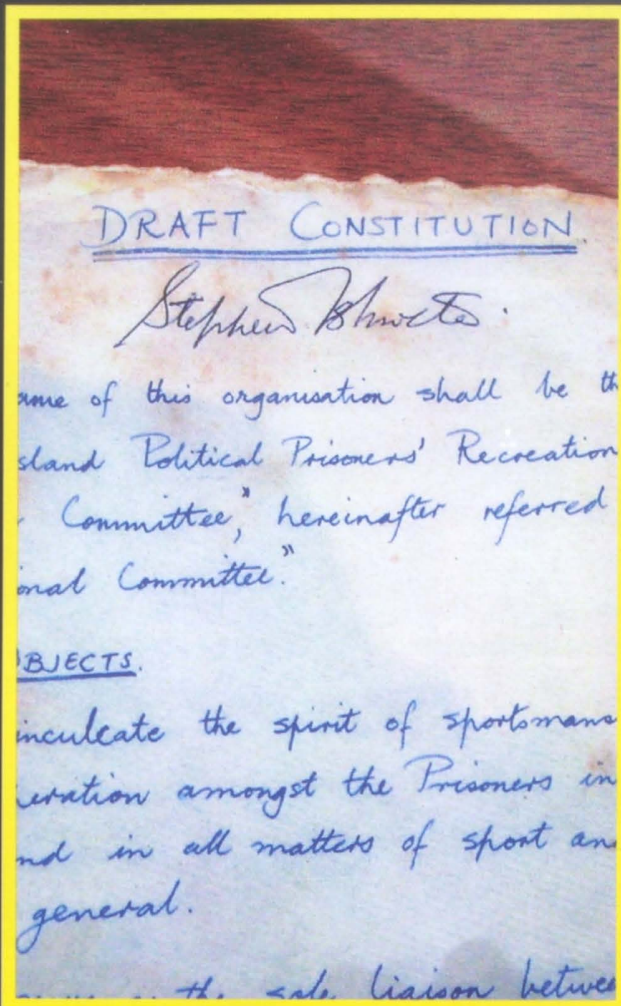 DRAFT CONSTITUTION
Stephen Tshwete.
ame of this organisation shall be th
sland Political Prisoners' Recreation
Committee", hereinafter referred
onal Committee."
BJECTS.
inculcate the spirit of sportsmans
eration amongst the Prisoners in
nd in all matters of sport an
general.
the sole liaison betwee